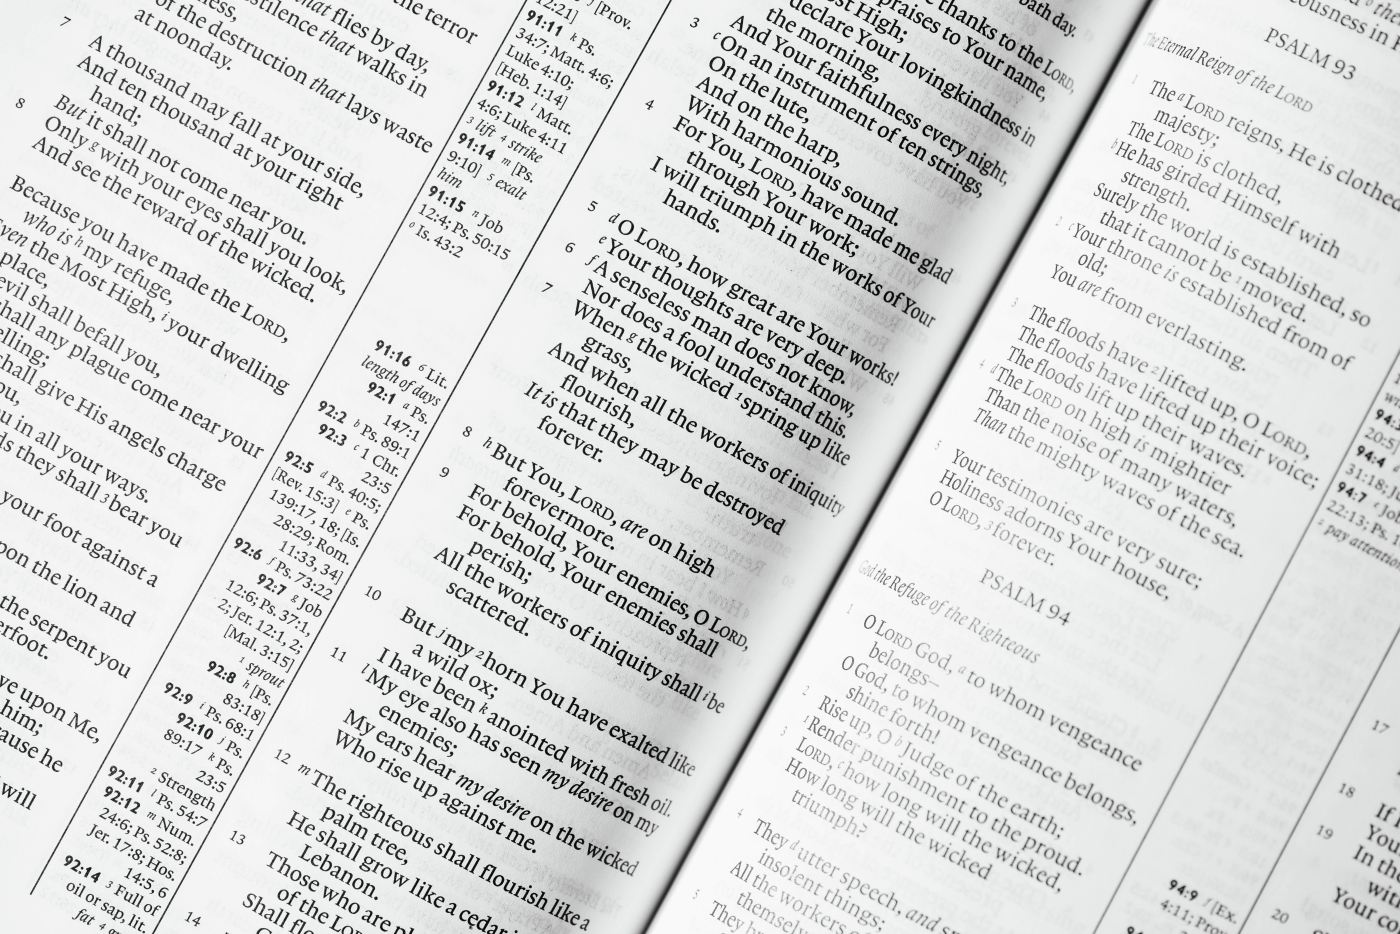 the terror
that flies by day,
stilence that walks in
of the destruction that lays waste
at noonday.
7 A thousand may fall at your side,
And ten thousand at your right
hand;
But it shall not come near you.
8 Only g with your eyes shall you look,
And see the reward of the wicked.
Because you have made the LORD,
who is h my refuge,
Even the Most High, i your dwelling
place,
evil shall befall you,
shall any plague come near your
elling;
shall give His angels charge
ou,
u in all your ways.
ds they shall 3 bear you
your foot against a
pon the lion and
the serpent you
erfoot.
ve upon Me,
him;
ause he
will
12:21] j [Prov.
91:11 k Ps.
34:7; Matt. 4:6;
Luke 4:10;
[Heb. 1:14]
91:12 l Matt.
4:6; Luke 4:11
3 lift 4 strike
91:14 m [Ps.
9:10] 5 exalt
him
91:15 n Job
12:4; Ps. 50:15
o Is. 43:2
91:16 6 Lit.
length of days
92:1 a Ps.
147:1
92:2 b Ps. 89:1
92:3 c 1 Chr.
23:5
92:5 d Ps. 40:5;
[Rev. 15:3] e Ps.
139:17, 18; [Is.
28:29; Rom.
11:33, 34]
92:6 f Ps. 73:22
92:7 g Job
12:6; Ps. 37:1,
2; Jer. 12:1, 2;
[Mal. 3:15]
1 sprout
92:8 h [Ps.
83:18]
92:9 i Ps. 68:1
92:10 j Ps.
89:17 k Ps.
23:5
2 Strength
92:11 l Ps. 54:7
92:12 m Num.
24:6; Ps. 52:8;
Jer. 17:8; Hos.
14:5, 6
92:14 3 Full of
oil or sap, lit.
fat
bath day.
thanks to the LORD,
praises to Your name,
st High;
declare Your lovingkindness in
the morning,
And Your faithfulness every night,
3 c On an instrument of ten strings,
On the lute,
And on the harp,
With harmonious sound.
4 For You, LORD, have made me glad
through Your work;
I will triumph in the works of Your
hands.
5 d O LORD, how great are Your works!
e Your thoughts are very deep.
6 f A senseless man does not know,
Nor does a fool understand this.
7 When g the wicked 1 spring up like
grass,
And when all the workers of iniquity
flourish,
It is that they may be destroyed
forever.
8 h But You, LORD, are on high
forevermore.
9 For behold, Your enemies, O LORD,
For behold, Your enemies shall
perish;
All the workers of iniquity shall i be
scattered.
10 But j my 2 horn You have exalted like
a wild ox;
I have been k anointed with fresh oil.
11 l My eye also has seen my desire on my
enemies;
My ears hear my desire on the wicked
Who rise up against me.
12 m The righteous shall flourish like a
palm tree,
He shall grow like a cedar in
Lebanon.
13 Those who are pl
of the LO
Shall flo
14
PSALM 93
The Eternal Reign of the LORD
1 The a LORD reigns, He is clothed
majesty;
The LORD is clothed,
b He has girded Himself with
strength.
Surely the world is established, so
that it cannot be 1 moved.
2 c Your throne is established from of
old;
You are from everlasting.
3 The floods have 2 lifted up, O LORD,
The floods have lifted up their voice;
The floods lift up their waves.
4 d The LORD on high is mightier
Than the noise of many waters,
Than the mighty waves of the sea.
5 Your testimonies are very sure;
Holiness adorns Your house,
O LORD, 3 forever.
PSALM 94
God the Refuge of the Righteous
1 O LORD God, a to whom vengeance
belongs—
O God, to whom vengeance belongs,
shine forth!
2 Rise up, O b Judge of the earth;
Render punishment to the proud.
3 LORD, c how long will the wicked,
How long will the wicked
triumph?
4 They d utter speech, and
insolent things;
All the workers of
themsel
5 They br
20:5]
94:4
31:18; J
94:7 e Job
22:13; Ps. 1
2 pay attention
94:9 f [Ex.
4:11; Prov
17
18
19
20
If
You
In th
wi
Your co